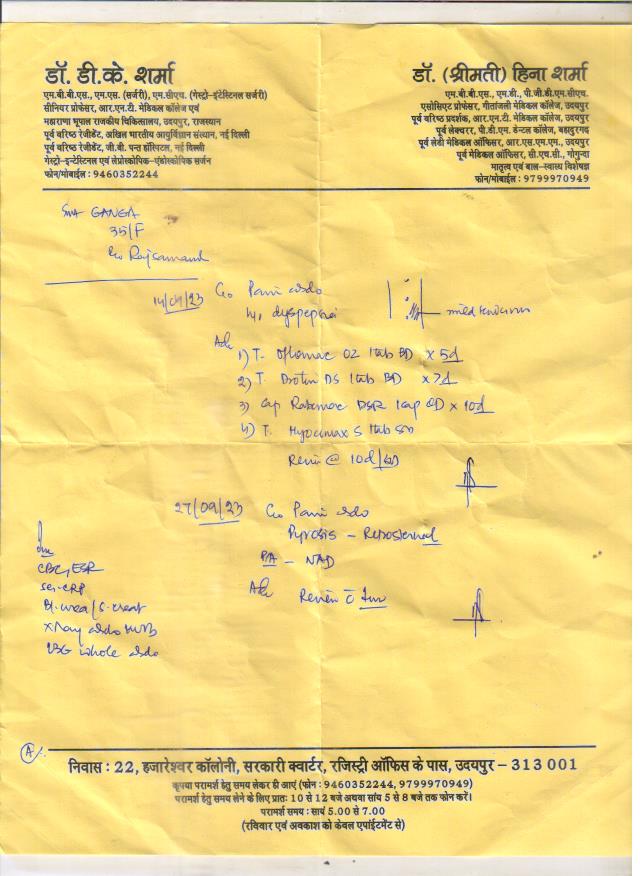 डॉ. डी.के. शर्मा
एम.बी.बी.एस., एम.एस. (सर्जरी), एम.सीएच. (गेस्ट्रो-इंटेस्टिनल सर्जरी)
सीनियर प्रोफेसर, आर.एन.टी. मेडिकल कॉलेज एवं
महाराणा भूपाल राजकीय चिकित्सालय, उदयपुर, राजस्थान
पूर्व वरिष्ठ रेजीडेंट, अखिल भारतीय आयुर्विज्ञान संस्थान, नई दिल्ली
पूर्व वरिष्ठ रेजीडेंट, जी.बी. पन्त हॉस्पिटल, नई दिल्ली
गेस्ट्रो-इन्टेस्टिनल एवं लेप्रोस्कोपिक-एंडोस्कोपिक सर्जन
फोन/मोबाईल : 9460352244
डॉ. (श्रीमती) हिना शर्मा
एम.बी.बी.एस., एम.डी., पी.जी.डी.एम.सीएच.
एसोसिएट प्रोफेसर, गीतांजली मेडिकल कॉलेज, उदयपुर
पूर्व वरिष्ठ प्रदर्शक, आर.एन.टी. मेडिकल कॉलेज, उदयपुर
पूर्व लेक्चरर, पी.डी.एम. डेन्टल कॉलेज, बहादुरगढ़
पूर्व लेडी मेडिकल ऑफिसर, आर.एस.एम.एम., उदयपुर
पूर्व मेडिकल ऑफिसर, सी.एच.सी., गोगुन्दा
मातृत्व एवं बाल-स्वास्थ्य विशेषज्ञ
फोन/मोबाईल : 9799970949
GANGA
35/F
Rajsamand
14/09/23 C/o Pain abdo
H/o dyspepsia
mild
Adv
1) T. Oflomac OZ 1tab BD x 5d
2) T. DS 1tab BD x 7d
3) Cap DSR 1cap OD x 10d
4) T. Hyocimax S 1tab
Review @ 10d/
27/09/23 C/o Pain abdo
Pyrosis - Retrosternal
PA - NAD
Adv Review c̄ Inv
Inv
CBC, ESR
Ser-CRP
Bl. urea/S. creat
X Ray abdo
USG whole abdo
A
निवास : 22, हजारेश्वर कॉलोनी, सरकारी क्वार्टर, रजिस्ट्री ऑफिस के पास, उदयपुर – 313 001
कृपया परामर्श हेतु समय लेकर ही आएं (फोन : 9460352244, 9799970949)
परामर्श हेतु समय लेने के लिए प्रातः 10 से 12 बजे अथवा सांय 5 से 8 बजे तक फोन करें।
परामर्श समय : सायं 5.00 से 7.00
(रविवार एवं अवकाश को केवल एपॉइंटमेंट से)